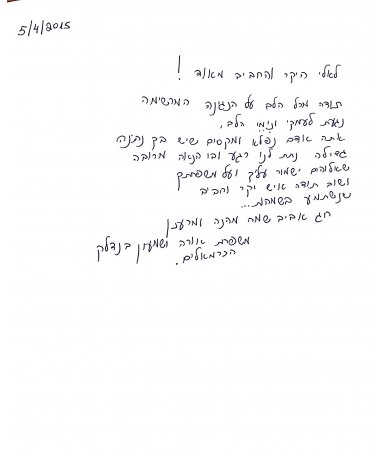 5/4/2015
לאלי היקר והחביב מאוד!
תודה מכל הלב על הנגינה המרשימה
נגעת לעמקי ונימי הלב,
אתה אדם נפלא ומקסים שיש בך נתינה
גדולה נתת לנו רגע ובו הנאה מרובה
שאלוהים ישמור עליך ועל משפחתך
ושוב תודה איש יקר וחביב
שנשתמע בשמחות...
חג אביב שמח מהנה ומרענן
משפחת אורה ושמעון בנדלק
הכרמאלים.